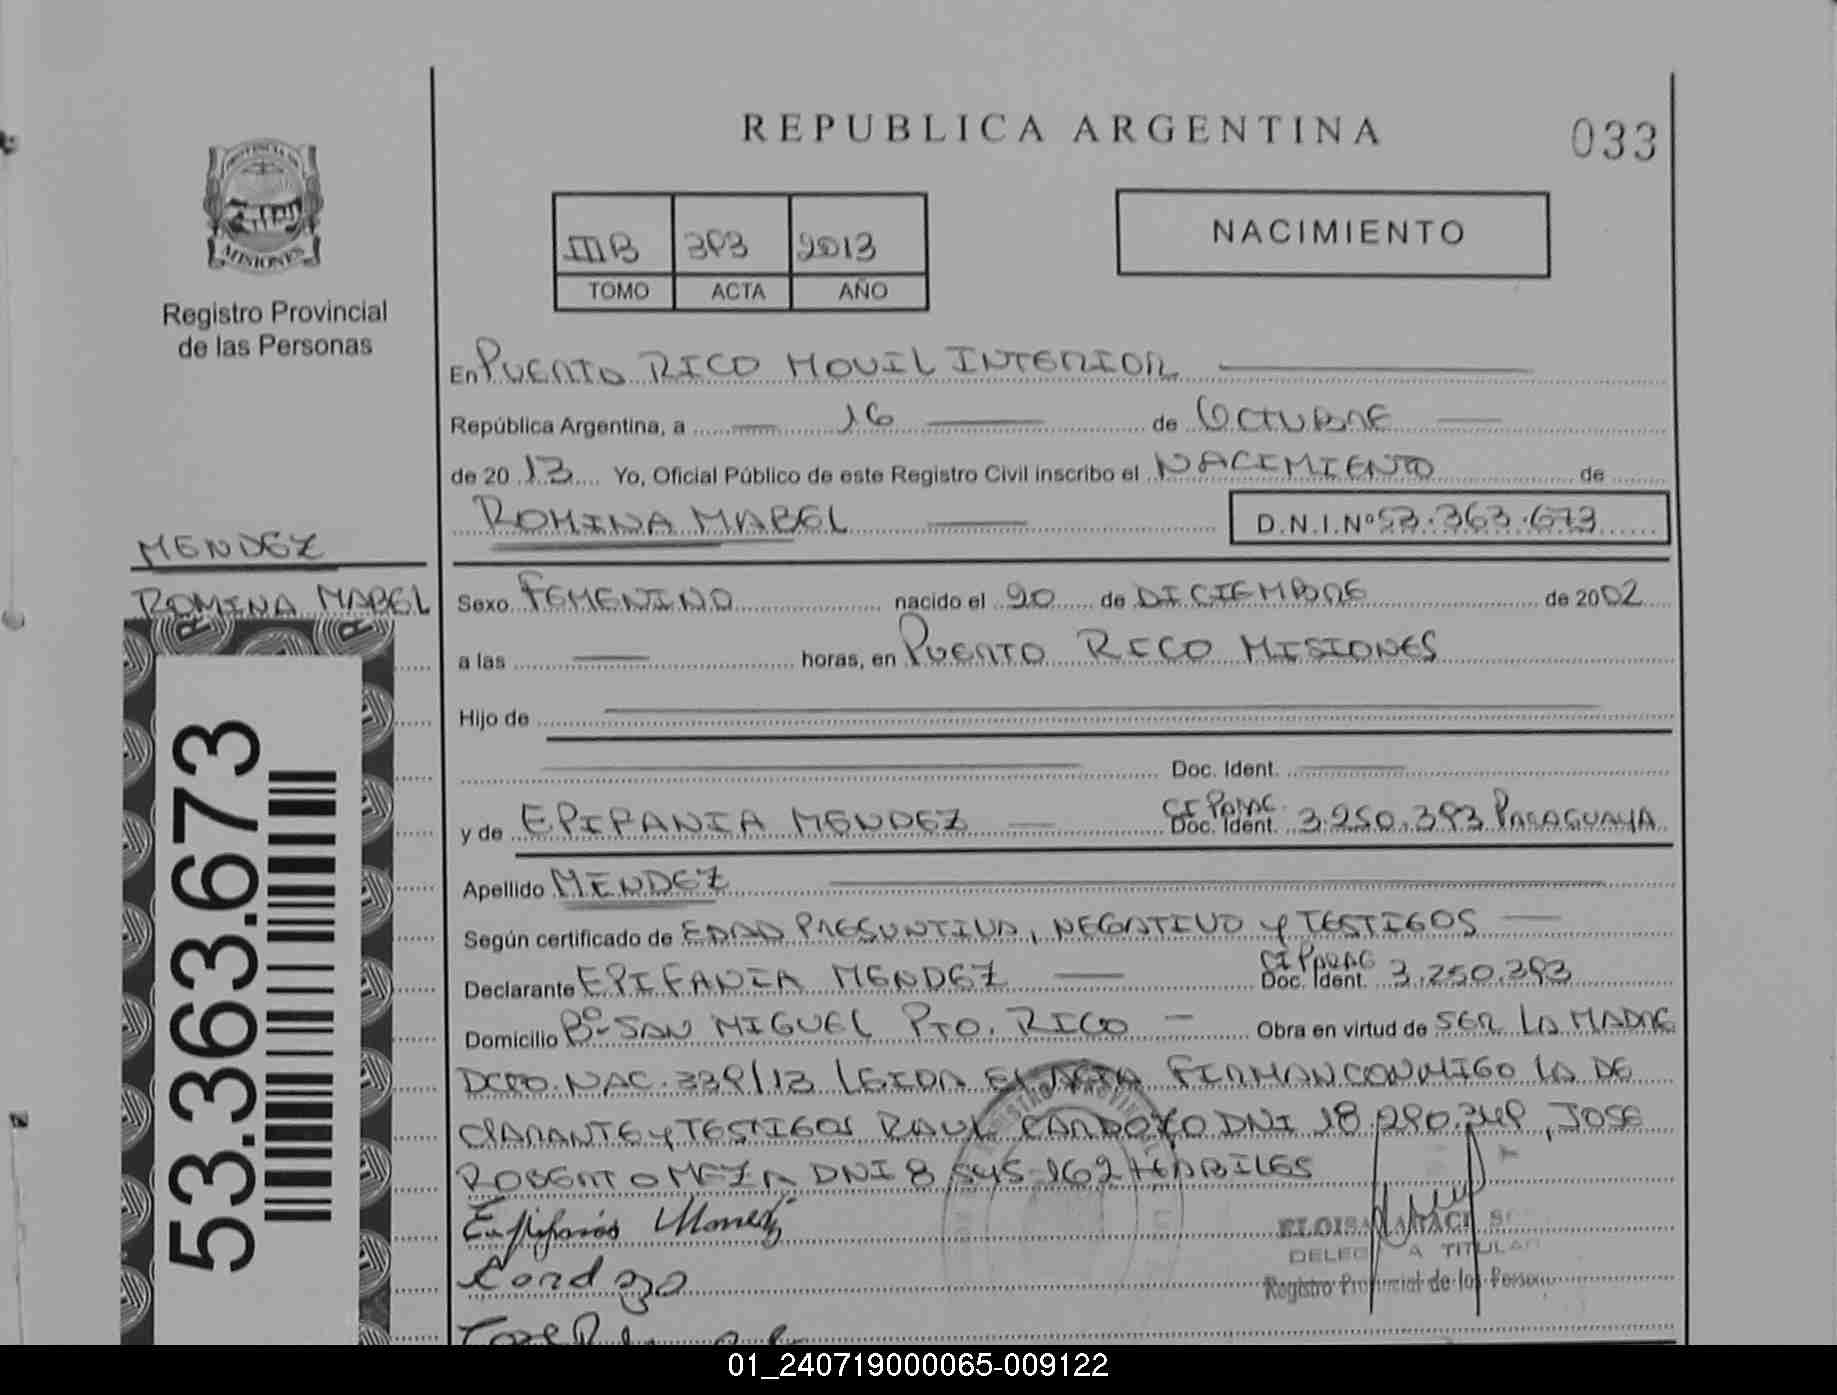 REPUBLICA ARGENTINA
033
PROVINCIA DE
MISIONES
Registro Provincial
de las Personas
IIIB 393 2013
TOMO ACTA AÑO
NACIMIENTO
En PUERTO RICO MOVIL INTERIOR
República Argentina, a 16 de OCTUBRE
de 2013 Yo, Oficial Público de este Registro Civil inscribo el NACIMIENTO de
ROMINA MABEL D.N.I.Nº 53.363.673
MENDEZ
ROMINA MABEL
53.363.673
Sexo FEMENINO nacido el 20 de DICIEMBRE de 2002
a las horas, en PUERTO RICO MISIONES
Hijo de
Doc. Ident.
y de EPIFANIA MENDEZ CI PARAG. Doc. Ident. 3.250.393 PARAGUAYA
Apellido MENDEZ
Según certificado de EDAD PRESUNTIVA, NEGATIVO y TESTIGOS
Declarante EPIFANIA MENDEZ CI PARAG Doc. Ident. 3.250.393
Domicilio Bº SAN MIGUEL PTO. RICO Obra en virtud de SER LA MADRE
DCTO. NAC. 339/13 LEIDA EL ACTA FIRMAN CONMIGO LA DE
CLARANTE y TESTIGOS RAUL CARDOZO DNI 18.290.349, JOSE
ROBERTO MEZA DNI 8.545.162 HABILES
Cardozo
ELOISA
DELEG A TITULAR
Registro Provincial de los Person
01_240719000065-009122